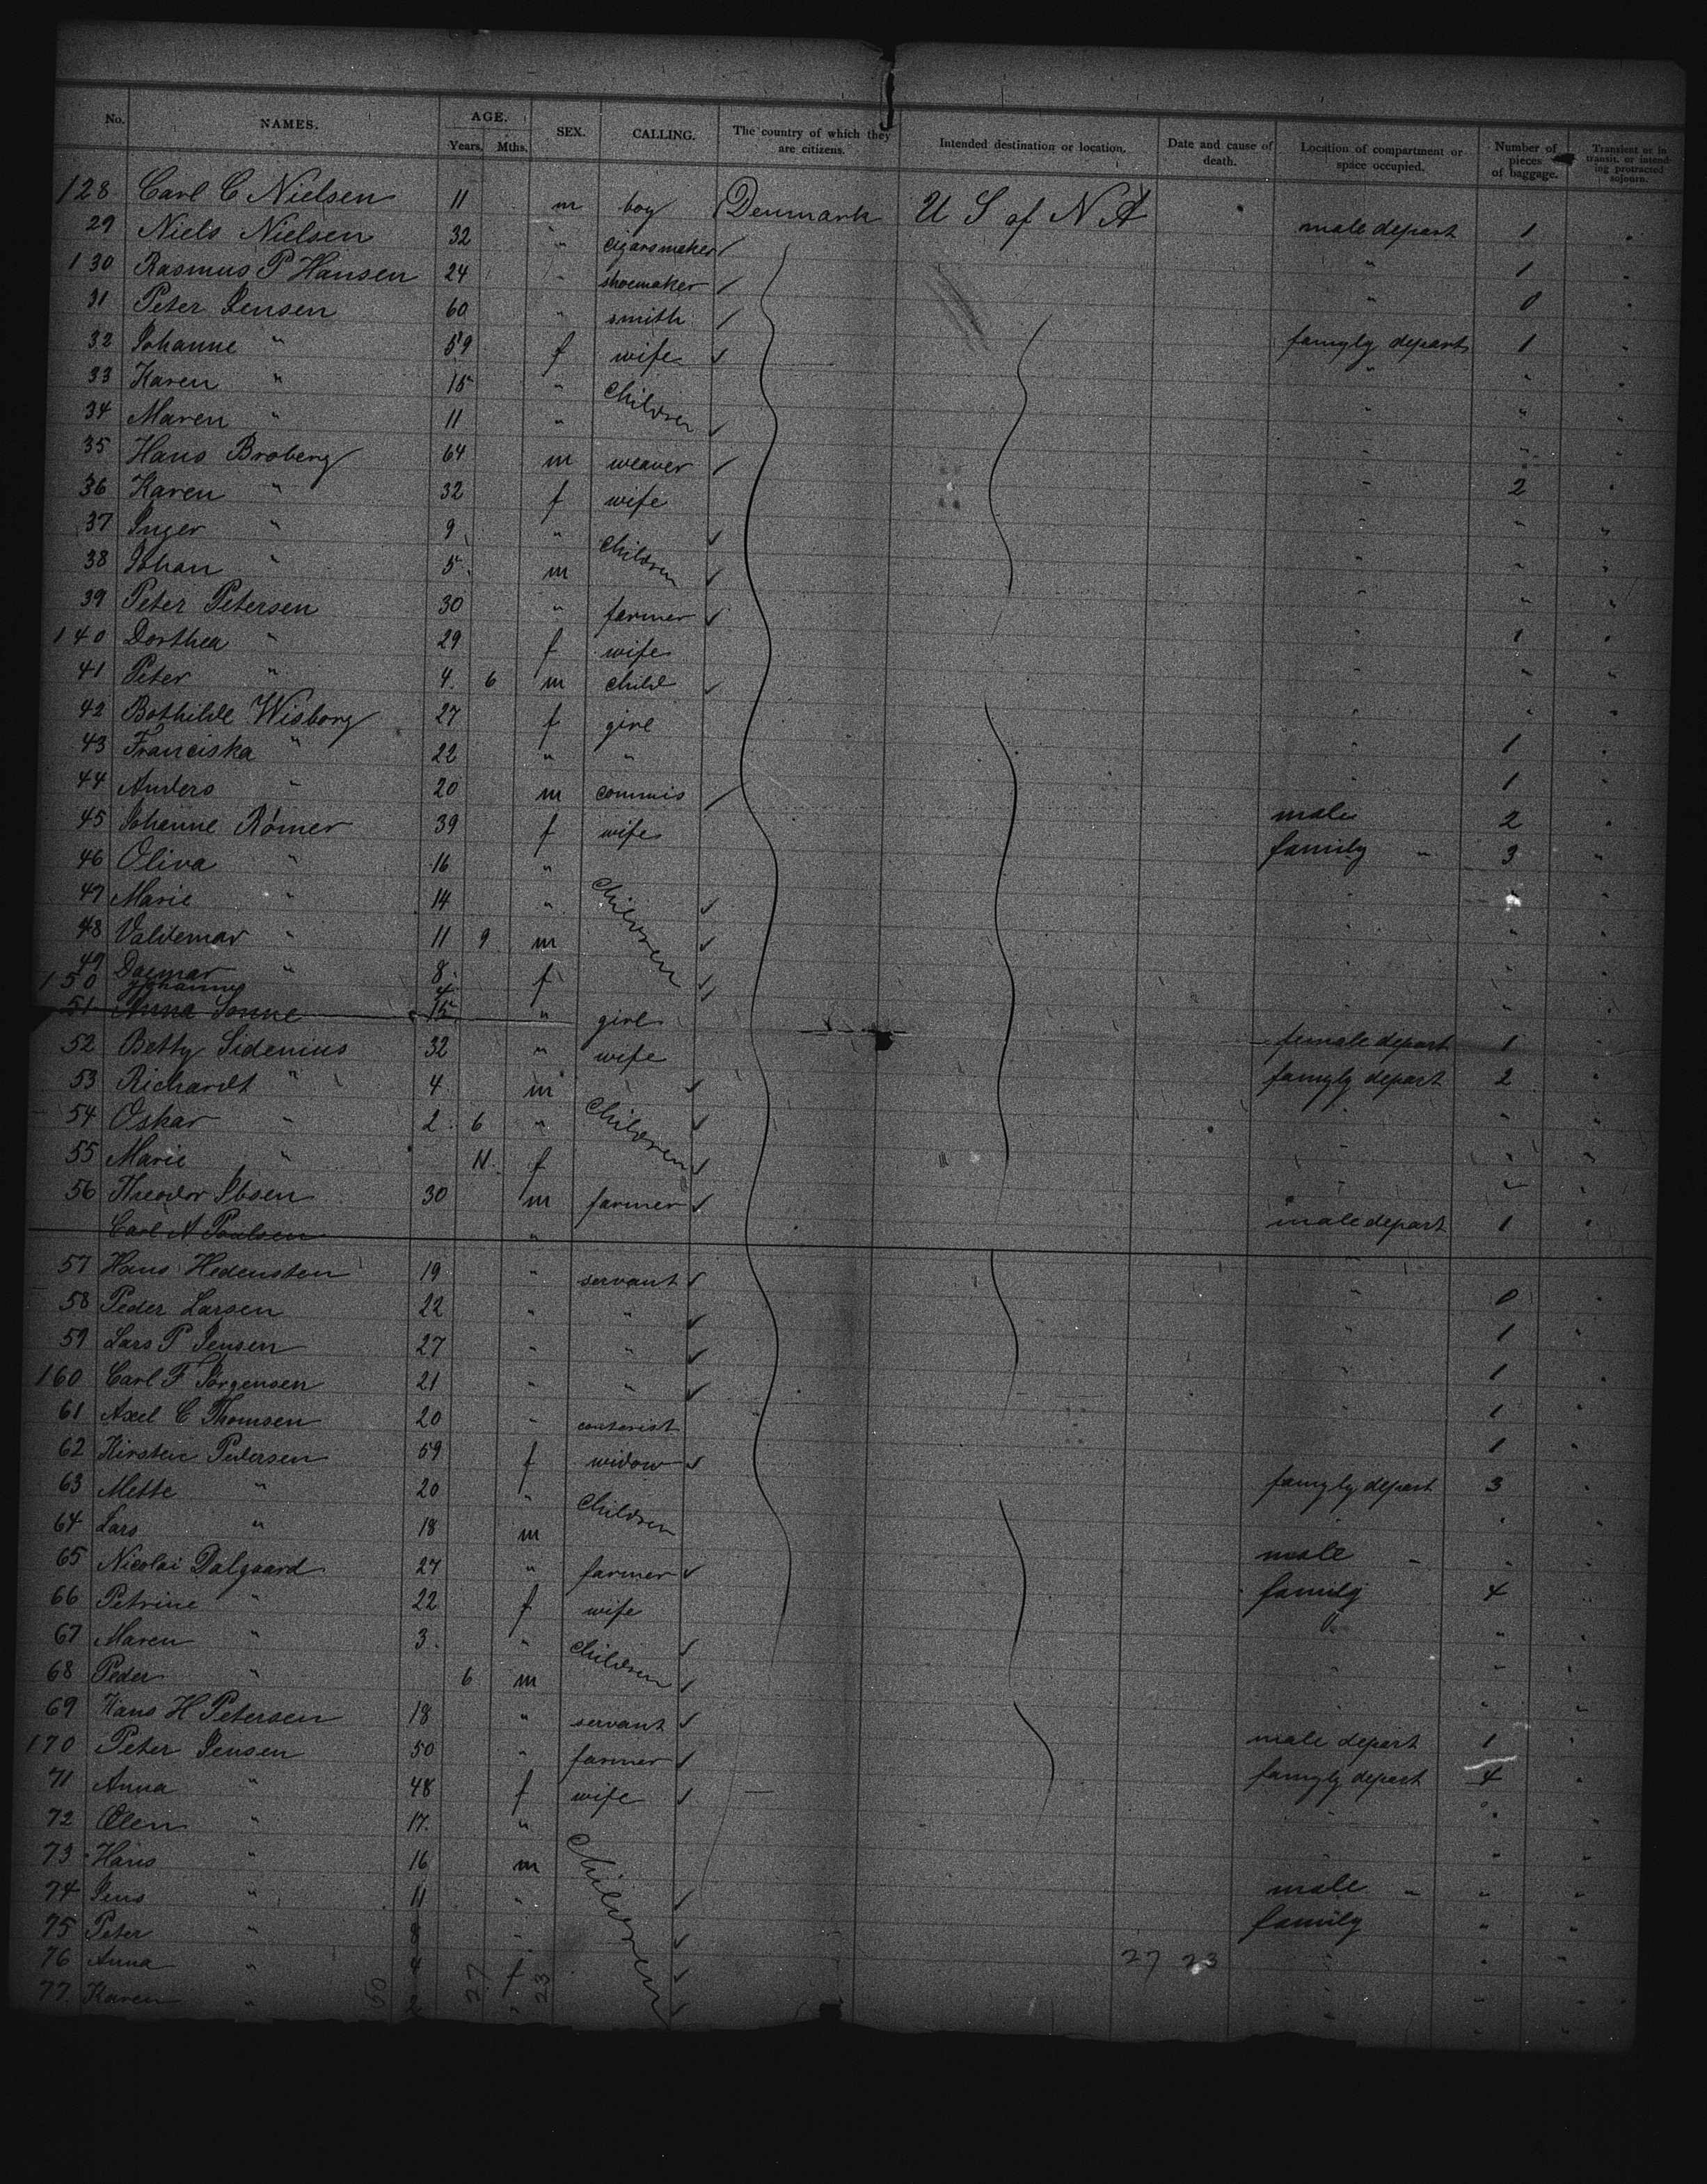 No. NAMES. AGE. Years. Mths. SEX. CALLING. The country of which they are citizens. Intended destination or location. Date and cause of death. Location of compartment or space occupied. Number of pieces of baggage. Transient or in transit, or intending protracted sojourn.
128 Carl C Nielsen 11 m boy Denmark U S of N A male depart 1 "
29 Niels Nielsen 32 " cigarsmaker " 1 "
130 Rasmus P Hansen 24 " shoemaker " 0 "
31 Peter Jensen 60 " smith famyly depart 1 "
32 Johanne " 59 f wife " " "
33 Karen " 15 " Children " " "
34 Maren " 11 " " " "
35 Hans Broberg 64 m weaver " 2 "
36 Karen " 32 f wife " " "
37 Inger " 9 " Children " " "
38 Johan " 5 m " " "
39 Peter Petersen 30 " farmer " 1 "
140 Dorthea " 29 f wife " " "
41 Peter " 4 6 m child " " "
42 Bothilde Wisborg 27 f girl " 1 "
43 Franciska " 22 " " " 1 "
44 Anders " 20 m commis male 2 "
45 Johanne Rømer 39 f wife family " 3 "
46 Oliva " 16 " " " "
47 Marie " 14 " Children " " "
48 Valdemar " 11 9 m " " "
49 Dagmar " 8 f " " "
150 Johanne 4
51 Anna Sonne 15 " girl female depart 1 "
52 Betty Sidenius 32 " wife famyly depart 2 "
53 Richardt " 4 m " " "
54 Oskar " 2 6 " Children " " "
55 Marie " 11 f " " "
56 Theodor Ibsen 30 m farmer male depart 1 "
Carl A Poulsen "
57 Hans Hedensten 19 " servant " 0 "
58 Peder Larsen 22 " " " 1 "
59 Lars P Jensen 27 " " " 1 "
160 Carl F Jørgensen 21 " " " 1 "
61 Axel C Thomsen 20 " contorist 1 "
62 Kirstine Pedersen 59 f widow famyly depart 3 "
63 Mette " 20 " Children " "
64 Lars " 18 m male " " "
65 Nicolai Dalgaard 27 " farmer family 4 "
66 Petrine " 22 f wife " "
67 Maren " 3 " Children " " "
68 Peder " 6 m " " "
69 Hans H Petersen 18 " servant male depart 1 "
170 Peter Jensen 50 " farmer famyly depart 4 "
71 Anna " 48 f wife " " "
72 Elen " 17 " " " "
73 Hans " 16 m Children male " " "
74 Jens " 11 " family " "
75 Peter " 8 " " " "
76 Anna " 4 f " " "
77 Karen " 2 " " " "
27 23
50 27 23